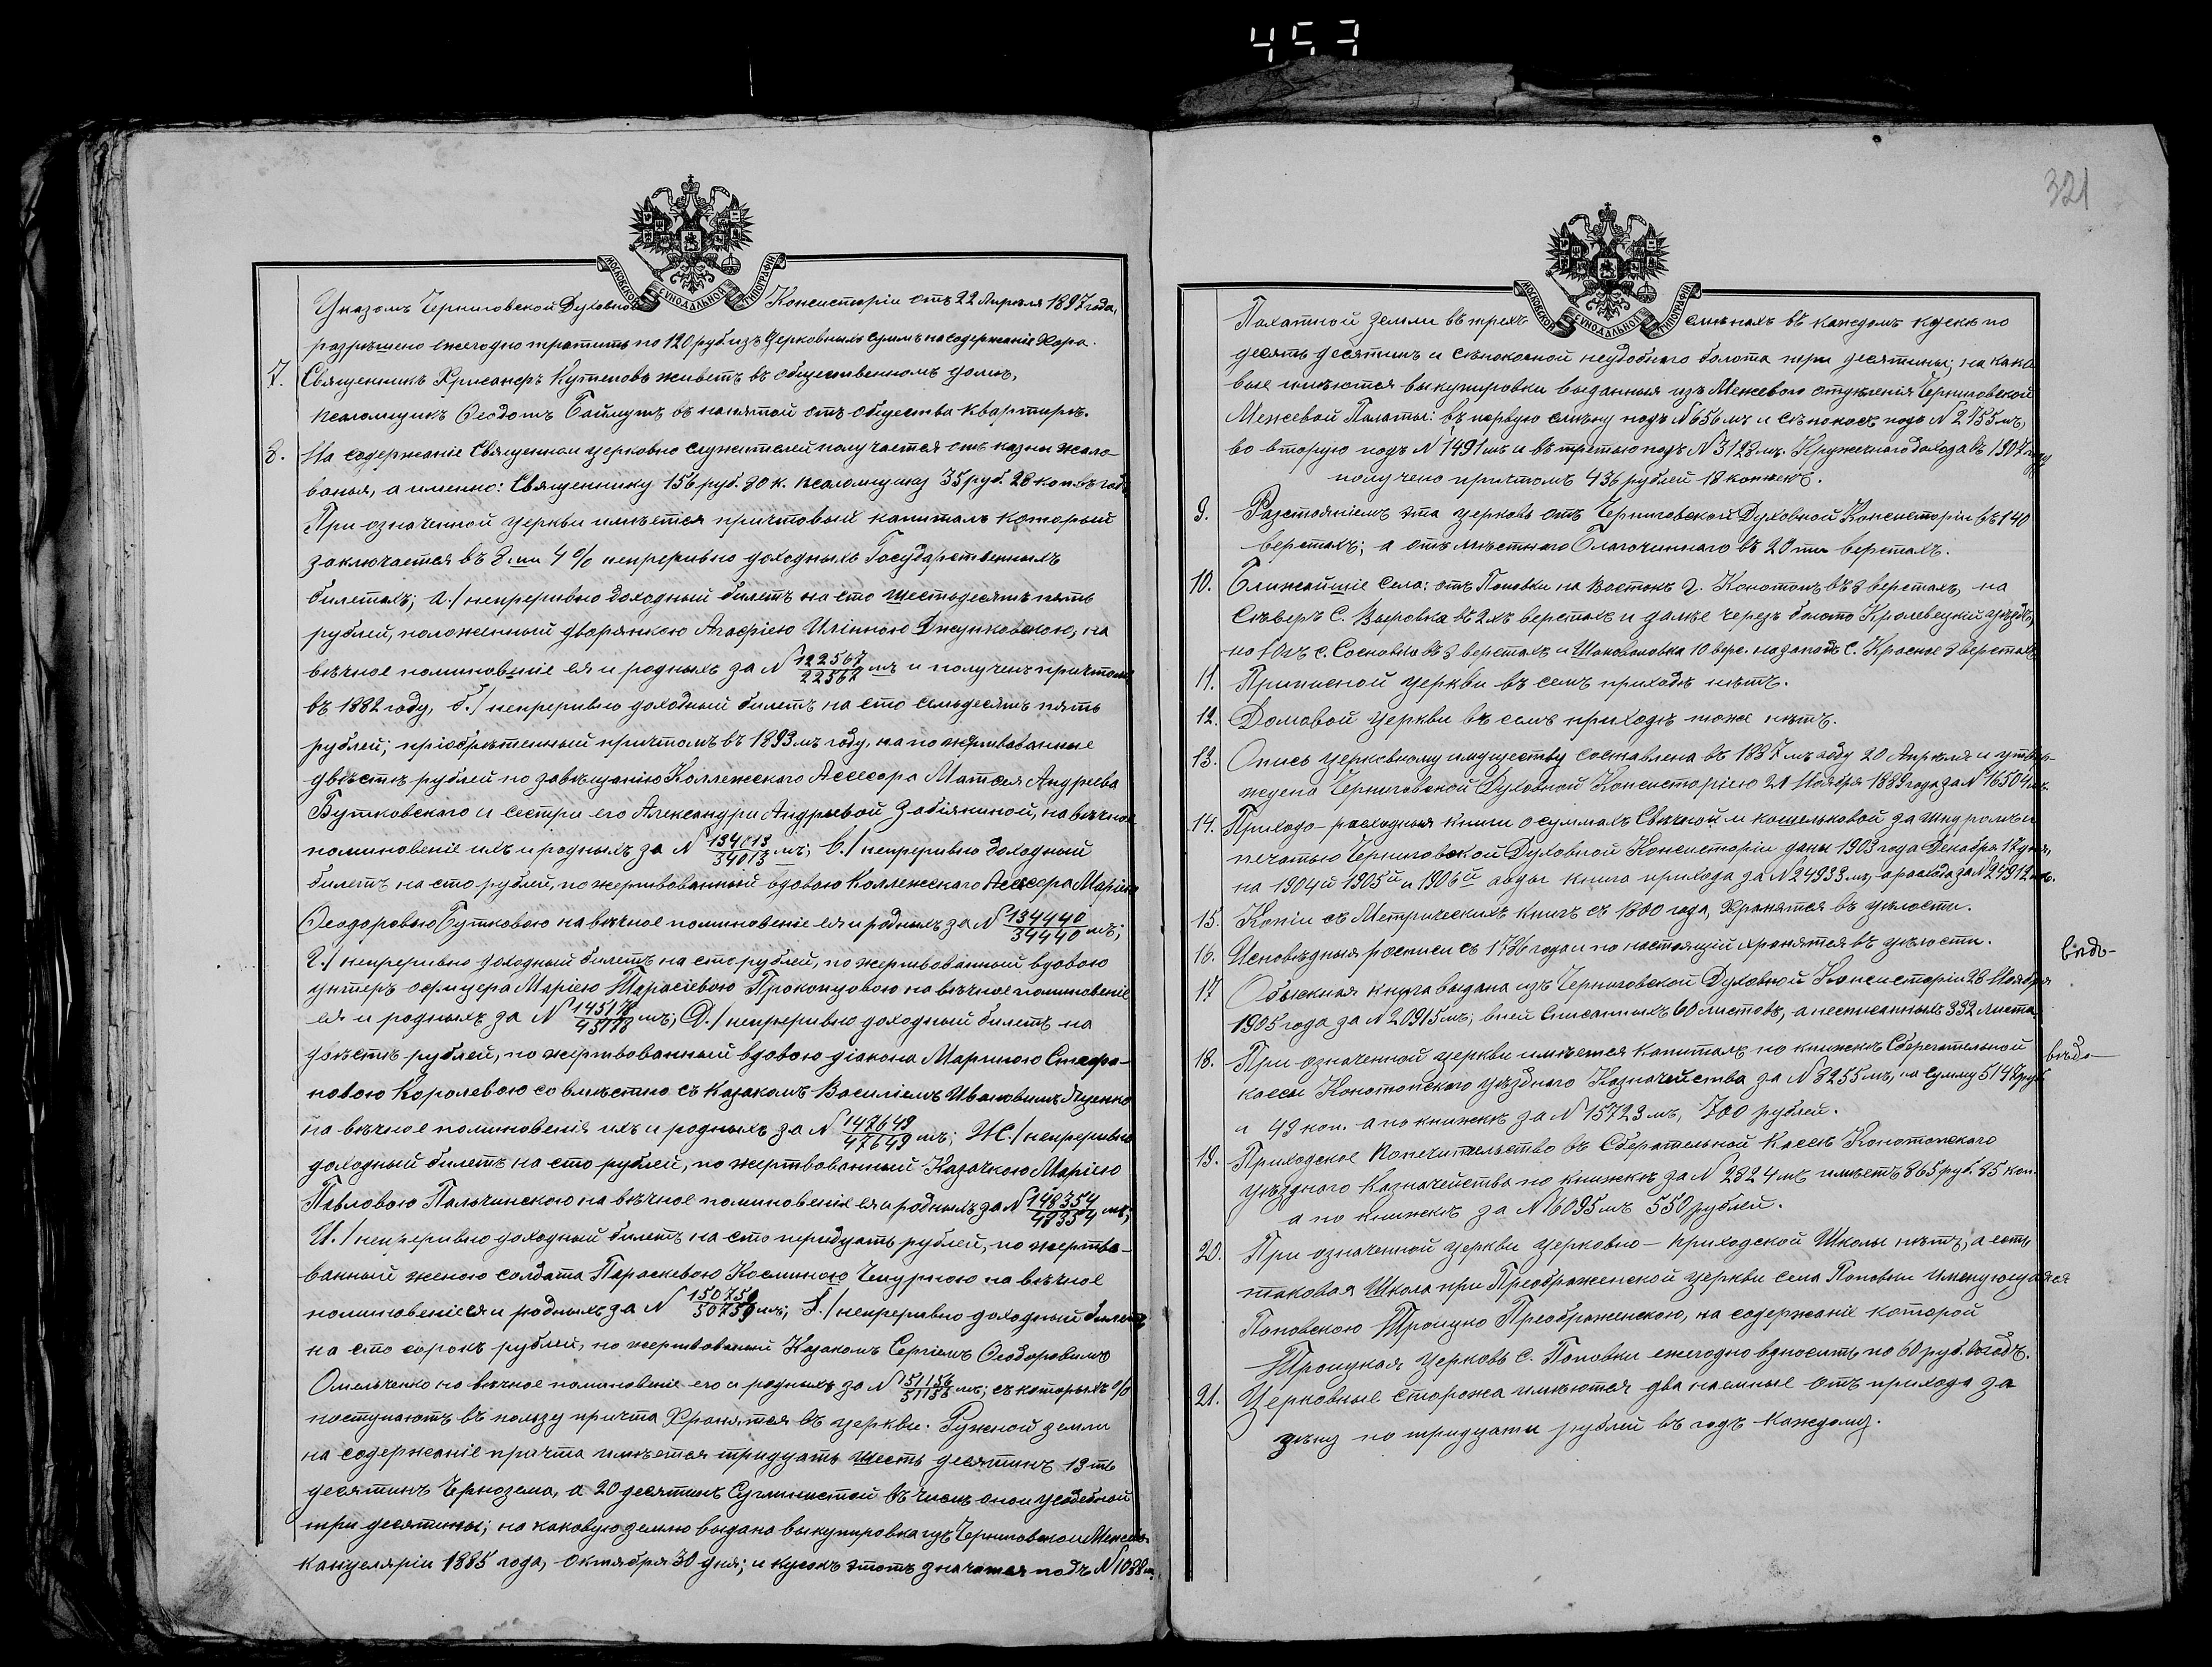 453
321
МОСКОВСКОЙ СУНОДАЛЬНОЙ ТИПОГРАФІИ
Указомъ Черниговской Духовной Консисторіи отъ 22 Апрѣля 1897 года,
разрѣшено ежегодно тратить по 120 руб. изъ Церковныхъ суммъ на содержаніе Хора.
7. Священникъ Хрисанѳъ живетъ въ общественномъ домѣ,
псаломщикъ Ѳеодотъ въ нанятой отъ общества квартирѣ.
8. На содержаніе Священно и церковно служителей получается отъ казны жало-
ванья, а именно: Священнику 156 руб. 80 к. псаломщику 35 руб. 28 коп. въ годъ
При означенной церкви имѣется причтовый капиталъ который
заключается въ 8 ми 4% непрерывно доходныхъ Государственныхъ
билетахъ; а./ непрерывно доходный билетъ на сто шестьдесятъ пять
рублей, положенный дворянкою Агафіею на
вѣчное поминовеніе ея и родныхъ за № 122567/22567 мъ и полученъ причтомъ
въ 1882 году, б./ непрерывно доходный билетъ на сто семьдесятъ пять
рублей; пріобрѣтенный причтомъ въ 1893 мъ году, на пожертвованные
двѣсти рублей по завѣщанію Коллежскаго Ассесора Матѳея Андреева
Бутковскаго и сестры его Александры Андреевой Забіякиной, на вѣчное
поминовеніе ихъ и родныхъ за № 134013/34013 мъ; в./ непрерывно доходный
билетъ на сто рублей, пожертвованный вдовою Коллежскаго Ассесора Маріею
Ѳеодоровою Бутковою на вѣчное поминовеніе ея и родныхъ за № 134440/34440 мъ;
г./ непрерывно доходный билетъ на сто рублей, пожертвованный вдовою
унтеръ офицера Маріею Тарасіевою Прокопцовою на вѣчное поминовеніе
ея и родныхъ за № 145178/45178 мъ; Д./ непрерывно доходный билетъ на
двѣсти рублей, пожертвованный вдовою діакона Мариною Стефа-
новою Королевою совмѣстно съ казакомъ Василіемъ Ивановымъ
на вѣчное поминовенія ихъ и родныхъ за № 147649/47649 мъ; Ж./ непрерывно
доходный билетъ на сто рублей, пожертвованный Казачкою Маріею
Павловою Пальчинскою на вѣчное поминовеніе ея и родныхъ за № 148354/48354 мъ;
И./ непрерывно доходный билетъ на сто тридцать рублей, пожертво-
ванный женою солдата Параскевою Косминою Чепурною на вѣчное
поминовеніе ея и родныхъ за № 150750/50750 мъ; І./ непрерывно доходный билетъ
на сто сорокъ рублей, пожертвованный Казакомъ Сергіемъ Ѳеодоровымъ
Омельченко на вѣчное поминовеніе его и родныхъ за № 151156/51156 мъ; съ которыхъ %
поступаютъ въ пользу причта Хранятся въ церкви. Ружной земли
на содержаніе причта имѣется тридцать шесть десятинъ 13 ть
десятинъ Чернозема, а 20 десятинъ Суглинистой въ числѣ оной усадебной
три десятины; на каковую землю выдана выкупировка изъ Черниговской Межев.
канцеляріи 1885 года, Октября 30 дня; и кусокъ этотъ значится подъ № 1088 м.
МОСКОВСКОЙ СУНОДАЛЬНОЙ ТИПОГРАФІИ
Пахатной земли въ трехъ смѣнахъ въ каждомъ кускѣ по
десять десятинъ и сѣнокосной неудобнаго болота три десятины; на како
вые имѣются выкупировки выданныя изъ Межеваго отдѣленія Черниговской
Межевой Палаты: въ первую смѣну подъ № 656 мъ и сѣнокосъ подъ № 2455 мъ,
во вторую подъ № 1491 мъ и въ третью подъ № 3128 мъ. Кружечнаго дохода въ 1907 году
получено причтомъ 436 рублей 18 копѣекъ.
9. Разстояніемъ эта церковь отъ Черниговской Духовной Консисторіи въ 140
верстахъ; а отъ мѣстнаго Благочиннаго въ 20 ти верстахъ.
10. Ближайшіе села: отъ Поповки на Востокъ г. Конотопъ въ 8 верстахъ, на
Сѣверъ С. Выровка въ 2хъ верстахъ и далѣе черезъ болото Кролевецкій уѣздъ,
на Югъ с. Сосновка въ 8 верстахъ и Шаповаловка 10 верс. на западъ С. Красное 8 верстахъ
11. Приписной церкви въ семъ приходѣ нѣтъ.
12. Домовой церкви въ семъ приходѣ тоже нѣтъ.
13. Опись церковному имуществу составлена въ 1887 мъ году 20 Апрѣля и утвер-
ждена Черниговской Духовной Консисторіею 21 Ноября 1889 года за № 16504 мъ.
14. Приходо-расходныя книги о суммахъ Свѣчной и кошельковой за шнуромъ и
печатью Черниговской Духовной Консисторіи даны 1903 года Декабря 17 дня,
на 1904 й 1905 й и 1906 й годы книга прихода за № 24933 мъ, а расхода за № 24912 мъ.
15. Копіи съ Метрическихъ книгъ съ 1800 года, Хранятся въ цѣлости.
16. Исповѣдныя росписи съ 1786 года и по настоящій хранятся въ цѣлости.
17 Обыскная книга выдана изъ Черниговской Духовной Консисторіи 28 Ноября
1905 года за № 20915 мъ; въ ней Списанныхъ 60 листовъ, а несписанныхъ 332 листа
18. При означенной церкви имѣется капиталъ по книжкѣ Сберегательной
кассы Конотопскаго уѣзднаго Казначейства за № 8255 мъ, на сумму 5147 руб
и 49 коп. а по книжкѣ за № 15723 мъ, 700 рублей.
19. Приходское попечительство въ Сберегательной Кассѣ Конотопскаго
уѣзднаго Казначейства по книжкѣ за № 2824 мъ имѣетъ 865 руб. 85 коп.
а по книжкѣ за № 16095 мъ 550 рублей.
20. При означенной церкви церковно-приходской Школы нѣтъ; а есть
таковая Школа при Преображенской церкви села Поповки именующаяся
Поповскою Троицко Преображенскою, на содержаніе которой
Троицкая церковь с. Поповки ежегодно вдноситъ по 60 руб. въ годъ.
21. Церковные сторожа имѣются два наемные отъ прихода за
цѣну по тридцати рублей въ годъ каждому.